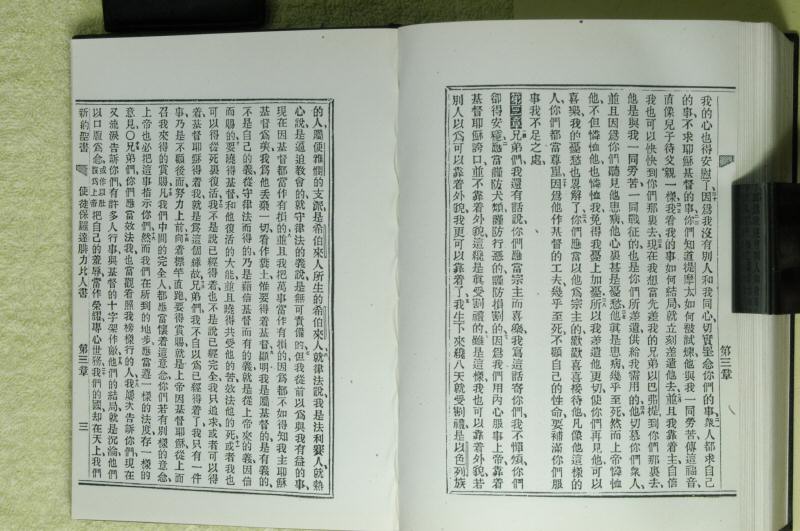 我的心也得安慰了因爲我沒有別人和我同心切實罣念你們的事衆人都求自己
的事不求耶穌基督的事你們知道提摩太如何被試煉他與我一同勞苦傳這福音
直像兒子待父親一樣我看我的事如何結局就立刻差遣他去並且我靠着主自信
我也可以快快到你們那裏去現在我想當先差我的兄弟以巴弗提到你們那裏去
他是與我一同勞苦一同戰征的也是你們所差遣供給我需用的他切慕你們衆人
並且因爲你們聽見他患病他心裏甚是憂愁他眞是患病幾乎至死然而上帝憐恤
他不但憐恤他也憐恤我免得我憂上加憂所以我差遣他更切使你們再見他可以
喜樂我的憂愁也
事我不足之處
第三章兄弟們我還有話說你們應當宗主而喜樂我寫這話寄你們我不憚煩你們
卻得安穩應當謹防犬類謹防行惡的謹防損割的因爲我們用內心服事上帝靠着
基督耶穌誇口並不靠着外貌這纔是眞受割禮的雖是這樣我也可以靠着外貌若
別人以爲可以靠着外貌我更可以靠着了我生下來纔八天就受割禮是以色列族
第三章
的人屬便雅憫的支派是希伯來人所生的希伯來人就律法說我是法利賽人就熱
心說是逼迫教會的就守律法的義說是無可責備的但我從前以爲與我有益的事
現在因基督都當作有損的並且我把萬事當作有損的因爲都不如得知我主耶穌
基督爲美我爲他丟棄一切看作糞土惟要得着基督顯明我是屬基督的是有義的
不是自己的義從守律法而得的乃是藉信基督而有的義就是從上帝來的義因信
而賜的要曉得基督和他復活的大能並且曉得共受他的苦效法他的死或者我也
可以得從死裏復活我不是說已經得着也不是說已經完全我只追求或者可以得
着基督耶穌得着我就是爲這個緣故兄弟們我不自以爲已經得着了我只有一件
事乃是不顧後而努力上前向着標竿直跑要得賞賜就是上帝因基督耶穌從上而
召我來得的賞賜凡我們中間的完全人都應當懷着這意念你們若有別樣的意念
上帝也必把這事指示你們然而我們在所到的地步應當遵一樣的法度存一樣的
意見○兄弟們你們應當效法我也當觀看照我榜樣行的人我屢次告訴你們現在
又流淚告訴你們有許多人行事與基督的十字架作敵他們的結局就是沉淪他們
以口腹爲念或作以肚腹爲上帝把自己的羞辱當作榮耀專心世務我們的國却在天上我們
新約聖書 使徒保羅達腓立比人書 第三章 三